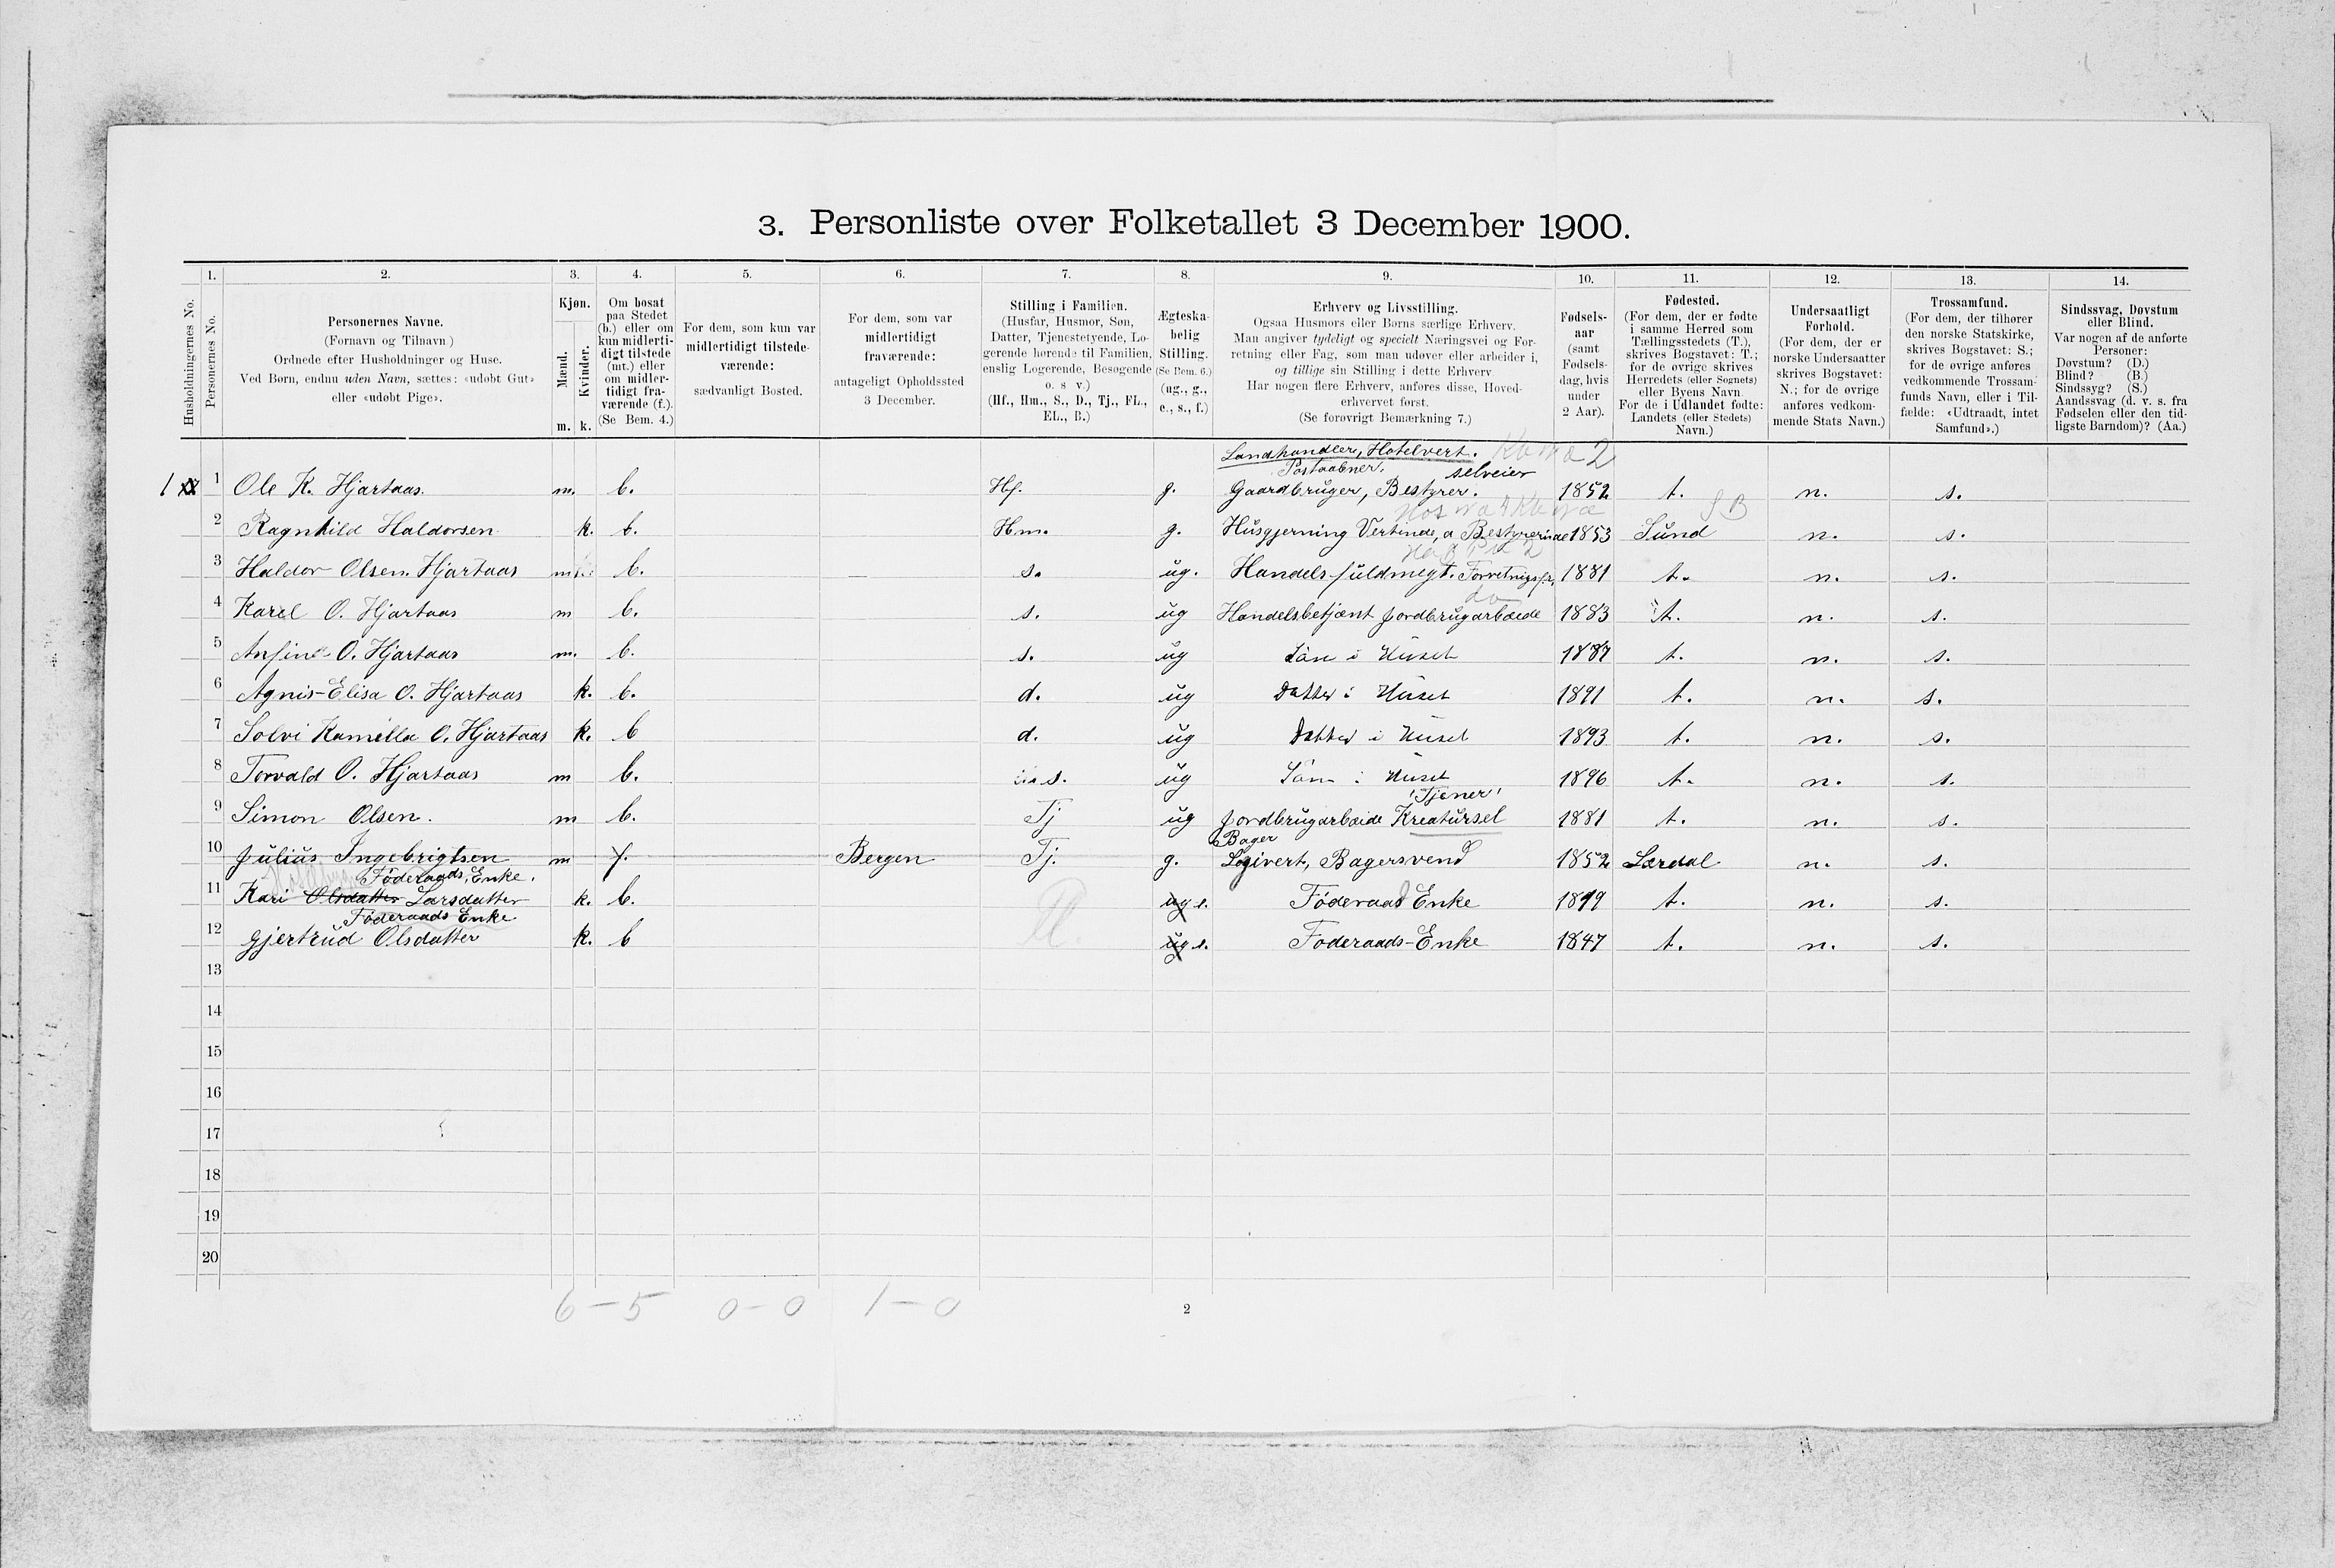 3. Personliste over Folketallet 3 December 1900.
1. 2. 3. 4. 5. 6. 7. 8. 9. 10. 11. 12. 13. 14.
Husholdningernes No.
Personernes No.
Personernes Navne.
(Fornavn og Tilnavn)
Ordnede efter Husholdninger og Huse.
Ved Børn, endnu uden Navn, sættes: «udøbt Gut»
eller «udøbt Pige».
Kjøn.
Mænd.
Kvinder.
m. k.
Om bosat
paa Stedet
(b.) eller om
kun midlerti-
digt tilstede
(mt.) eller
om midler-
tidigt fra-
værende (f.).
(Se Bem. 4.)
For dem, som kun var
midlertidigt tilstede-
værende:
sædvanligt Bosted.
For dem, som var
midlertidigt
fraværende:
antageligt Opholdssted
3 December.
Stilling i Familien.
(Husfar, Husmor, Søn,
Datter, Tjenestetyende, Lo-
gerende hørende til Familien,
enslig Logerende, Besøgende
o. s v.)
(Hf., Hm., S., D., Tj., FL.,
EL., B.)
Ægteska-
belig
Stilling.
(Se Bem. 6.)
(ug., g.,
e., s., f.)
Erhverv og Livsstilling.
Ogsaa Husmors eller Børns særlige Erhverv.
Man angiver tydeligt og specielt Næringsvei og For-
retning eller Fag, som man udøver eller arbeider i,
og tillige sin Stilling i dette Erhverv.
Har nogen flere Erhverv, anføres disse, Hoved-
erhvervet først.
(Se forøvrigt Bemærkning 7.)
Fødsels-
aar
(samt
Fødsels-
dag, hvis
under
2 Aar).
Fødested.
(For dem, der er fødte
i samme Herred som
Tællingsstedets (T.),
skrives Bogstavet: T.;
for de øvrige skrives
Herredets (eller Sognets)
eller Byens Navn.
For de i Udlandet fødte:
Landets (eller Stedets)
Navn.)
Undersaatligt
Forhold.
(For dem, der er
norske Undersaatter
skrives Bogstavet:
N.; for de øvrige
anføres vedkom-
mende Stats Navn.)
Trossamfund.
(For dem, der tilhører
den norske Statskirke,
skrives Bogstavet: S.;
for de øvrige anføres
vedkommende Trossam-
funds Navn, eller i Til-
fælde: «Udtraadt, intet
Samfund».)
Sindssvag, Døvstum
eller Blind.
Var nogen af de anførte
Personer:
Døvstum? (D.)
Blind? (B.)
Sindssyg? (S.)
Aandssvag (d. v. s. fra
Fødselen eller den tid-
ligste Barndom)? (Aa.)
Landhandler, Hotelvert.
Postaabner. selveier
1 1 Ole K. Hjartaas. m. b. Hf. g. Gaardbruger, Bestyrer. 1852 t. n. s.
2 Ragnhild Haldorsen k. b. Hm. g. Husgjerning Vertinde, a Bestyrerinde 1853 Sund n. s.
3 Haldor Olsen Hjartaas m. b. s. ug. Handelsfuldmegt. 1881 t. n. s.
4 Karel O. Hjartaas m b. s. ug Handelsbetjent Jordbrugarbeide 1883 t. n. s.
5 Anfin O. Hjartaas m. b. s. ug Sön i Huset 1887 t. n. s.
6 Agnis-Elisa O. Hjartaas k. b. d. ug Datter i Huset 1891 t. n. s.
7 Solvi Kamilla O. Hjartaas k. b d. ug Datter i Huset 1893 t. n. s.
8 Torvald O. Hjartaas m b. s. ug Sön i Huset 1896 t. n. s.
Tjener
9 Simon Olsen. m b. Tj ug Jordbrugarbeide Kreaturstel 1881 t. n. s.
Bager
10 Julius Ingebrigtsen m f. Bergen Tj. g. Logivert, Bagersvend 1852 Lærdal n. s.
Föderaads Enke.
11 Kari Olsdatter Larsdatter k. b. ug e. Föderaad Enke 1819 t. n. s.
Föderaads Enke
12 Gjertrud Olsdatter k. b ug e. Foderaads-Enke 1847 t. n. s.
13
14
15
16
17
18
19
20
6 - 5 0 - 0 1 - 0
2